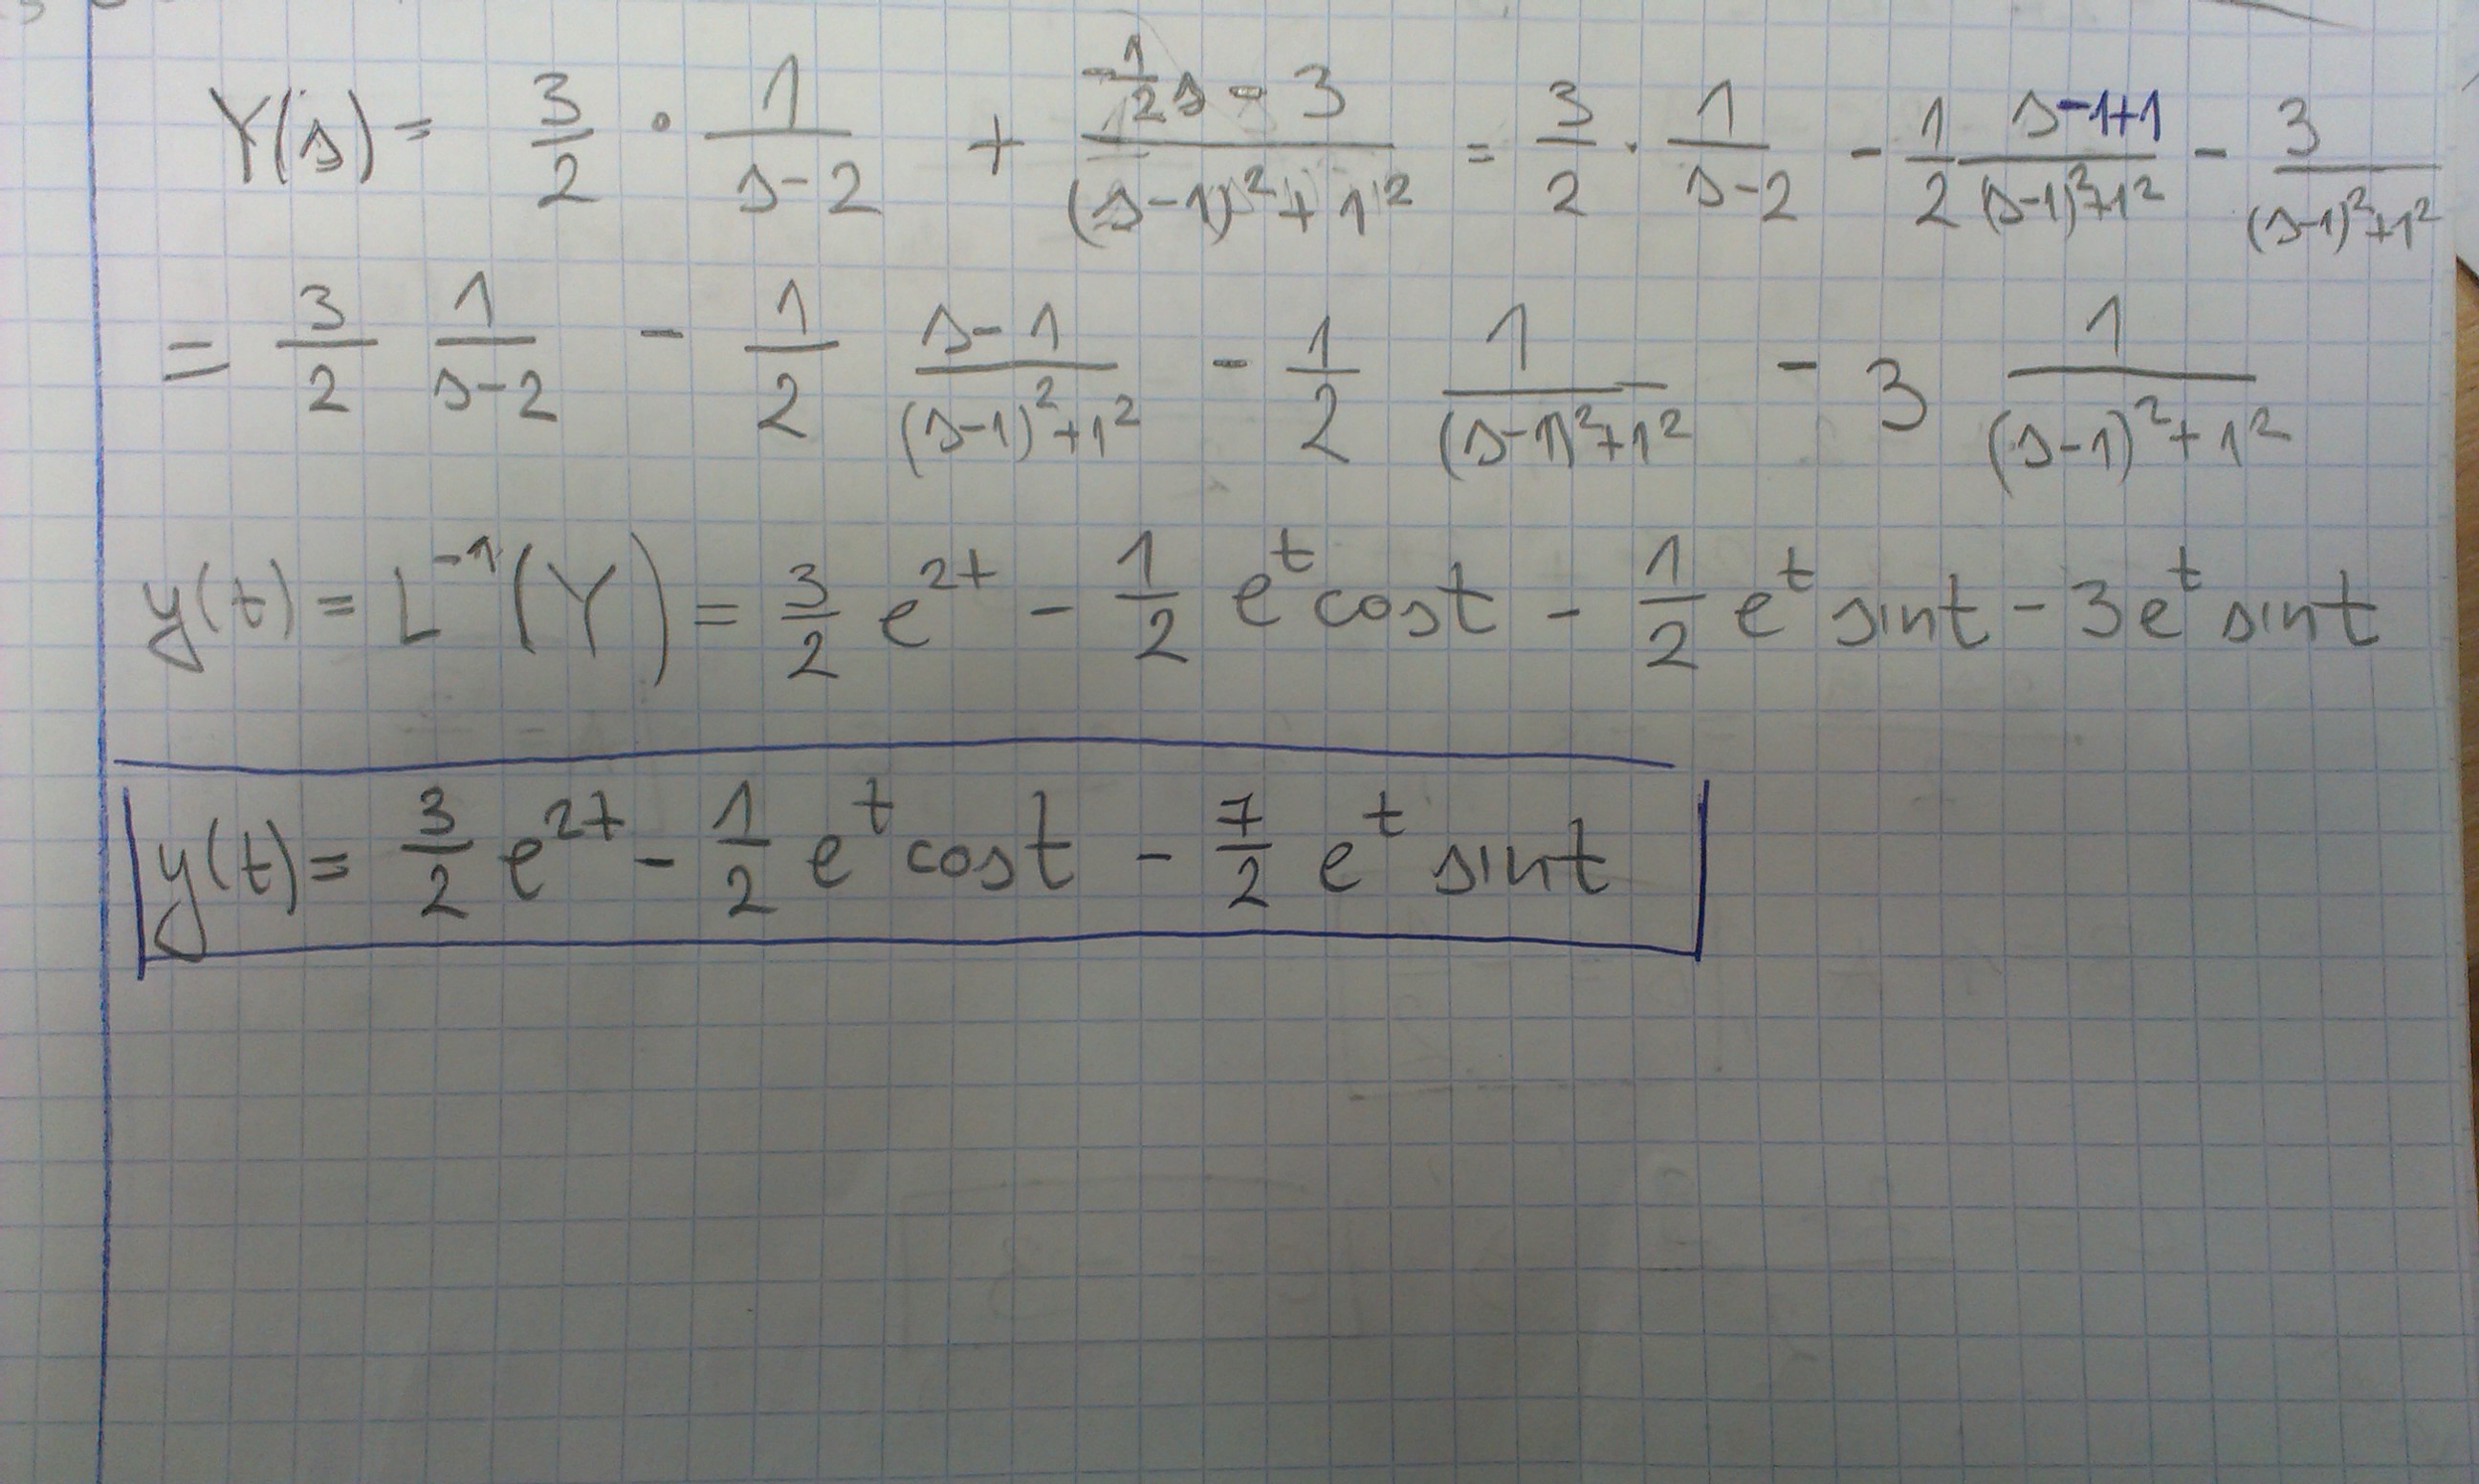 Y(s) = 3/2 · 1/(s-2) + (-1/2 s - 3)/((s-1)²+1²) = 3/2 · 1/(s-2) - 1/2 (s-1+1)/((s-1)²+1²) - 3/((s-1)²+1²)
= 3/2 1/(s-2) - 1/2 (s-1)/((s-1)²+1²) - 1/2 1/((s-1)²+1²) - 3 1/((s-1)²+1²)
y(t) = L⁻¹(Y) = 3/2 e^{2t} - 1/2 e^t cost - 1/2 e^t sint - 3e^t sint
y(t) = 3/2 e^{2t} - 1/2 e^t cost - 7/2 e^t sint